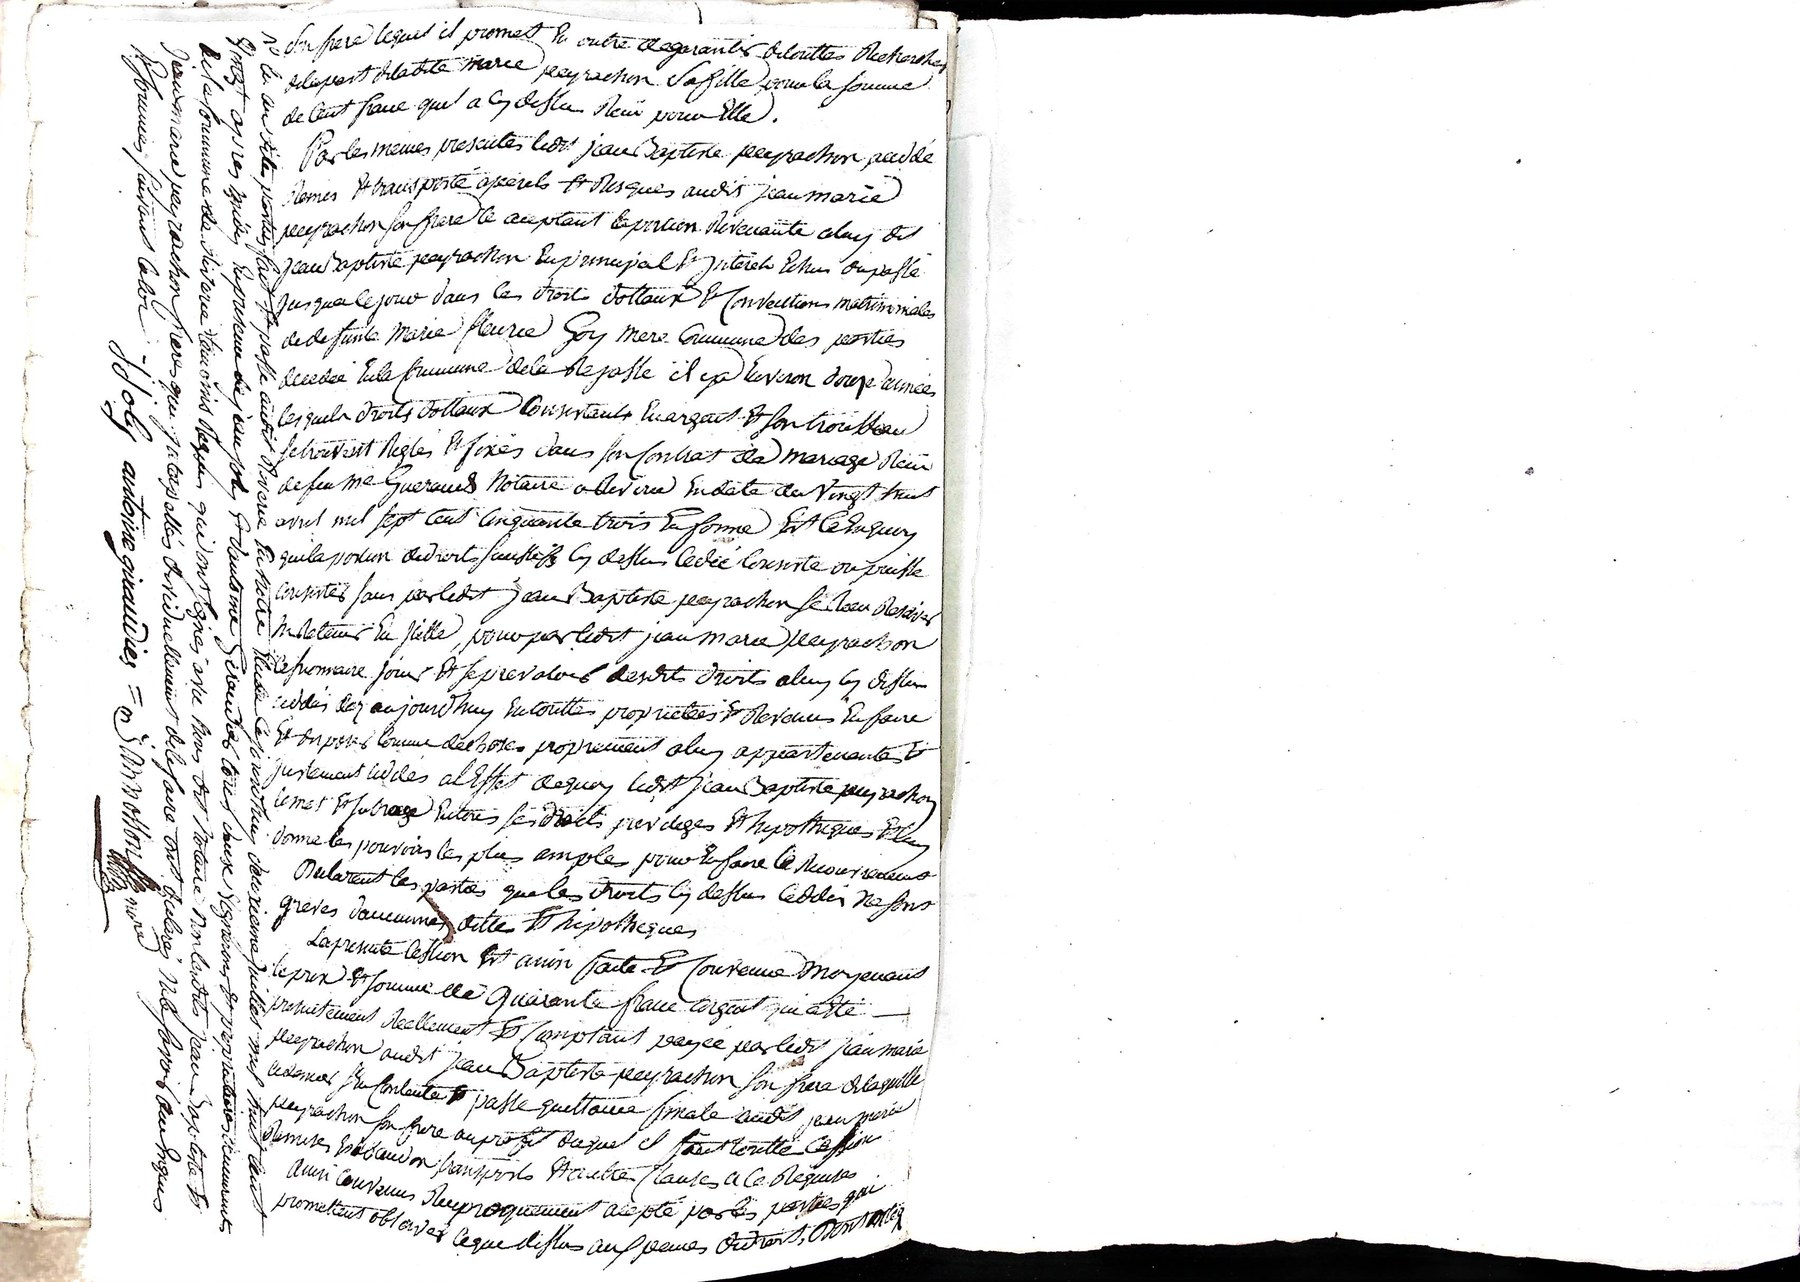 son frere lequel il promet en outre degarantir detouttes Recherches
delapart deladite marie peyrachon Saffille pour la somme
de Cent franc quil a cy dessus Reçu pour Elle.
Par les memes presentes ledit jean Baptiste peyrachon a cedé
Remis Et transporté a perils Et Risques audit jean marie
peyrachon son frere le aceptant la portion Revenante aluy dit
jean Baptiste peyrachon En principal Et jnterets Echus du passé
jusquacejour dans les droits dottaux Et Conventions matrimoniales
de defunte Marie fleurie Goy mere Commune des parties
decedée En la Commune dela Rejasse il y a Environ douze années
lesquels droits dottaux Consistants En argent Et son trousseau
se trouvent Reglés Et fixés dans son Contrat de mariage Reçu
de feu Me Notaire En date du Vingt huit
avril mil sept Cent Cinquante trois En forme Et Ce En quoy
que la portion de droits susdits cy dessus Cedée Consiste ou puisse
Consister sans par ledit jean Baptiste peyrachon se Rien Reserver
ny Retenir En jcelle, pour par ledit jean marie peyrachon
Cessionnaire jouir Et se prevaloir desdits droits aluy cy dessus
cedés dez aujourdhuy En touttes proprietées Et Revenus En faire
Et disposer Comme de choses proprement aluy appartenantes Et
justement cedées a l'Effet dequoy ledit jean Baptiste peyrachon
le met Et subroge En tous ses droits privileges Et hypotheques Et luy
donne les pouvoirs les plus amples pour En faire le Recouvrement
Declarent les parties que les droits cy dessus Ceddés Ne sont
greves d'aucunes dettes Et hipotheques
La presente Cession Est ainsi faite Et Convenue Moyenant
le prix Et somme de Quarante franc argent qui a Eté
presentement Reellement Et Comptant payée par ledit jean marie
peyrachon audit jean Baptiste peyrachon son frere delaquelle
ce dernier sen Contente Et passe quittance finale audit jean marie
peyrachon son frere au profit duquel il fait toutte Cession
Remises Et abandon transports Et autres Clauses a Ce Requises
Ainsi Convenu Reciproquement acepté par les parties qui
promettent observer Ce que dessus aux peines de droit, Dont acte
lu aux dites parties fait Et passé audit En notre Etude Cejourdhuy douzieme juillet mil huit Cent
apres midi En presence de jean joly Et d'antoine Giraudies tous deux
de la Commune de Riverie temoins Requis qui ont signés avec Nous dit Notaire non lesdits jean Baptiste Et
jean marie peyrachon freres qui jnterpellés jndividuellement dele faire ont declarés Ne savoir de Enquis
Et sommés suivant la loi.
j joly antoine giraudies =